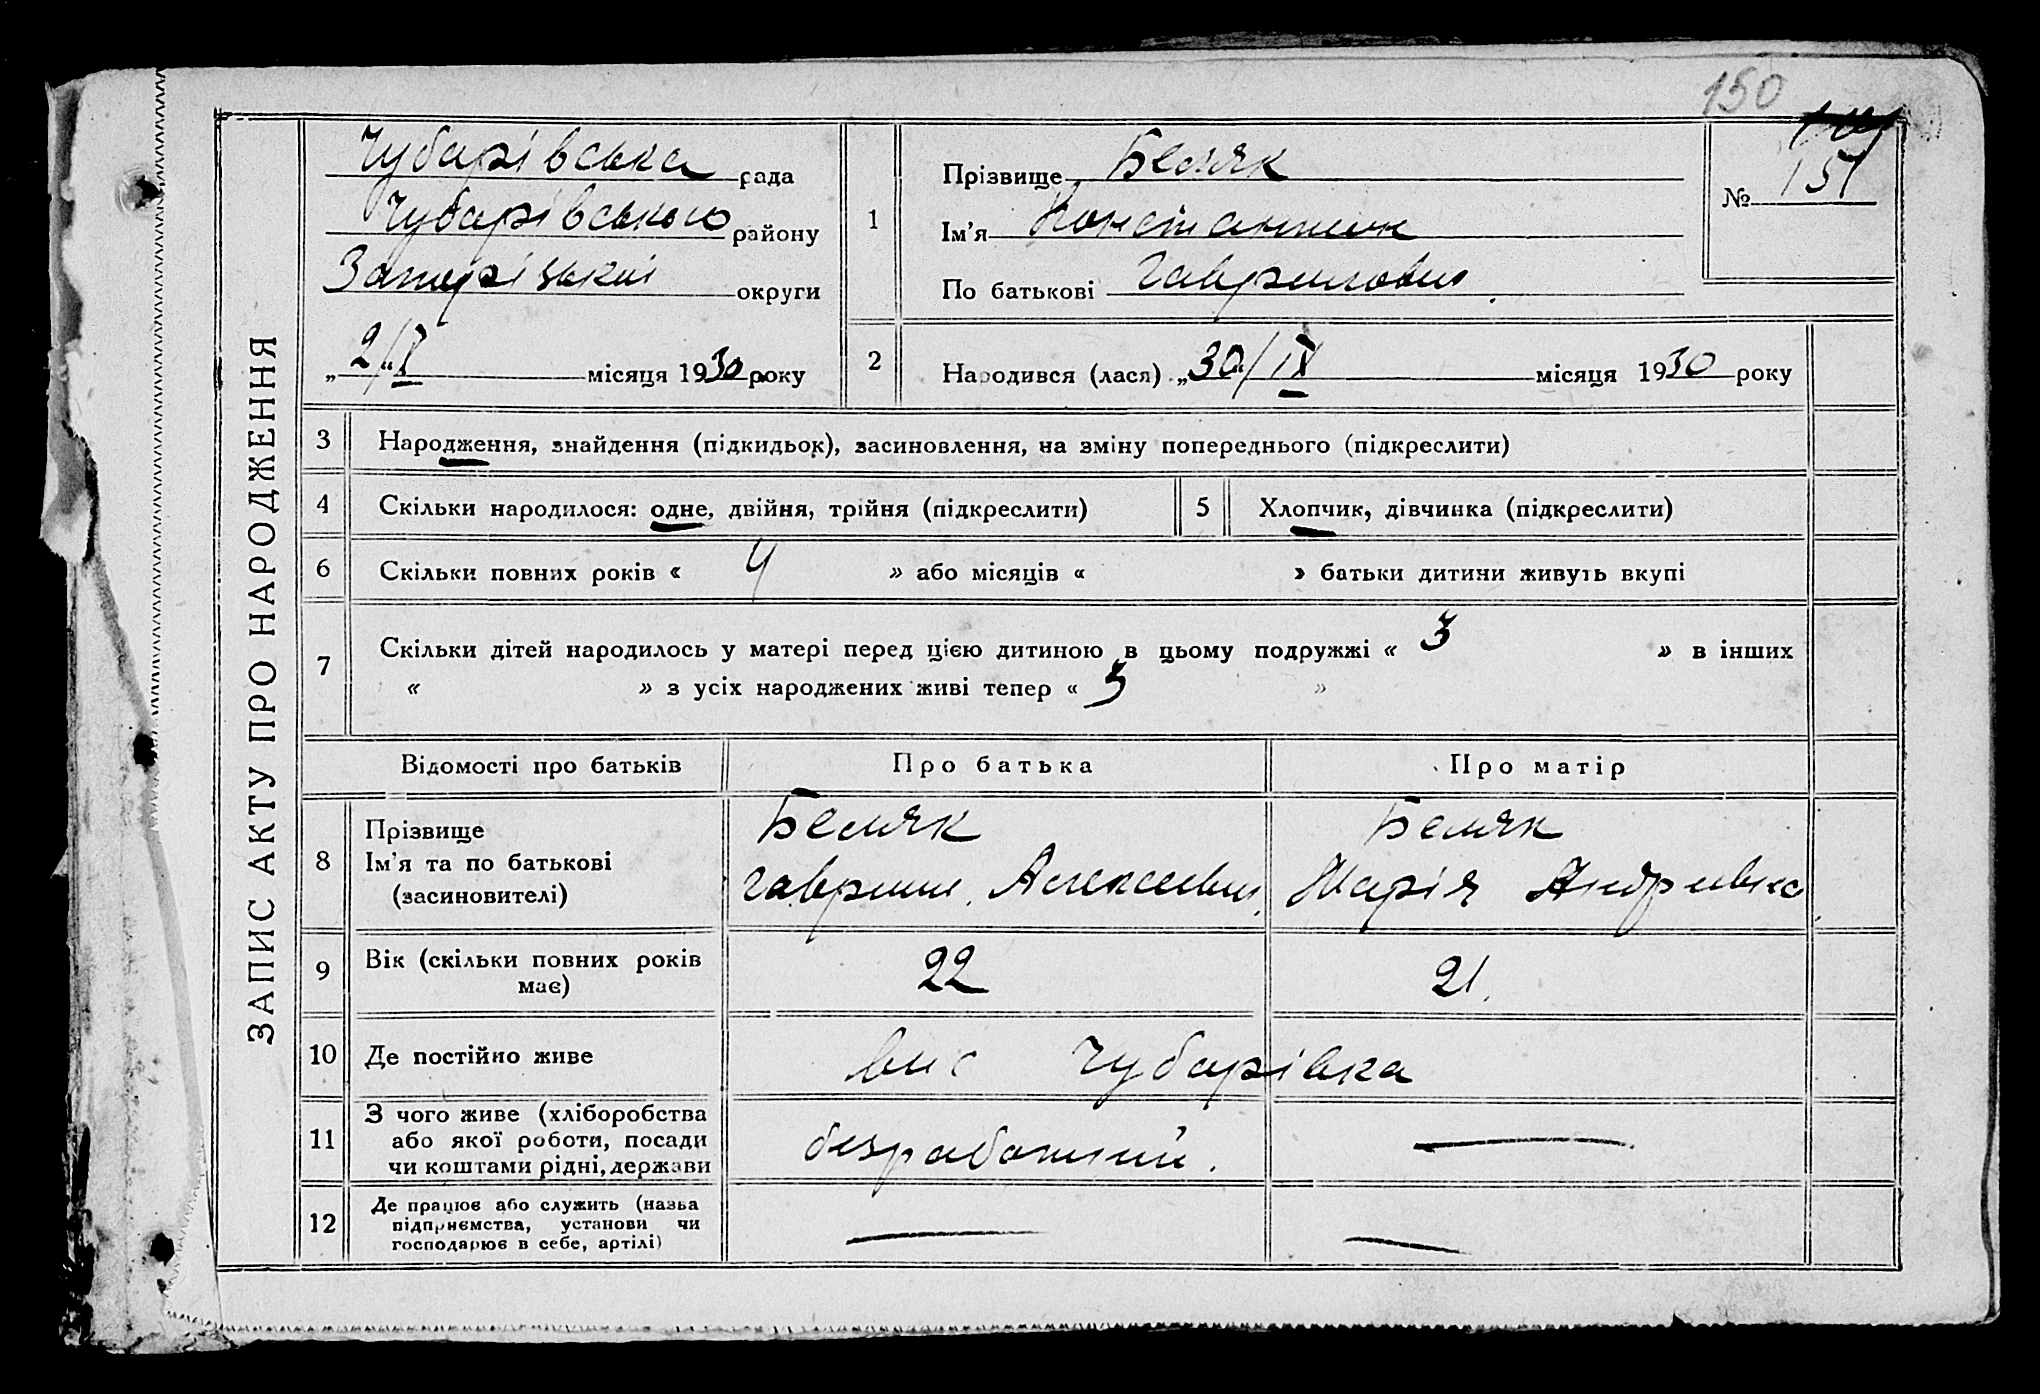 150
ЗАПИС АКТУ ПРО НАРОДЖЕННЯ
Чубарівська рада
Чубарівського району
округи
„2/X“ місяця 1930 року
1
Прізвище Беляк
Ім'я Константин
По батькові Гаврилович
№ 151
2
Народився (лася) „30“/IX місяця 1930 року
3 Народження, знайдення (підкидьок), засиновлення, на зміну попереднього (підкреслити)
4 Скільки народилося: одне, двійня, трійня (підкреслити) 5 Хлопчик, дівчинка (підкреслити)
6 Скільки повних років « 4 » або місяців « » батьки дитини живуть вкупі
7 Скільки дітей народилось у матері перед цією дитиною в цьому подружжі « 3 » в інших
« » з усіх народжених живі тепер « 3 »
Відомості про батьків Про батька Про матір
8 Прізвище Беляк Беляк
Ім'я та по батькові Алексеевич Марія
(засиновителі)
9 Вік (скільки повних років має) 22 21
10 Де постійно живе Чубарівка
11 З чого живе (хліборобства
або якої роботи, посади безработний
чи коштами рідні, держави
12 Де працює або служить (назва
підприємства, установи чи
господарює в себе, артілі)